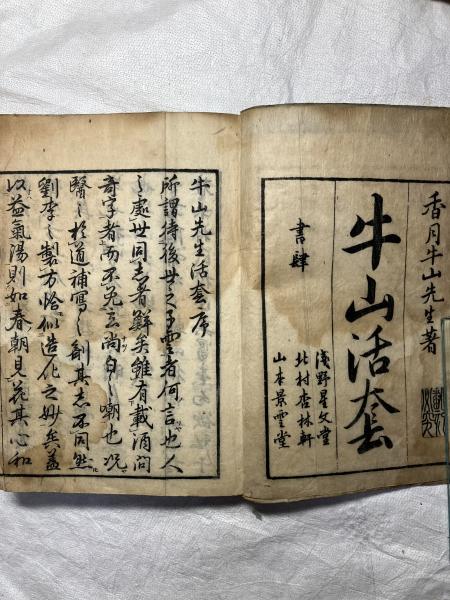 香月牛山先生著
牛山活套
書肆
淺野星文堂
北村杏林軒
山本景雲堂
牛山先生活套序
所謂待後世之子雲者何言也人
之處世同志者鮮矣雖有載酒問
奇字者而不免玄尚白之嘲也况
醫之於道補瀉之劑其志不同然
劉李之製方恰似造化之妙矣蓋
以益氣湯則如春朝見花其心和